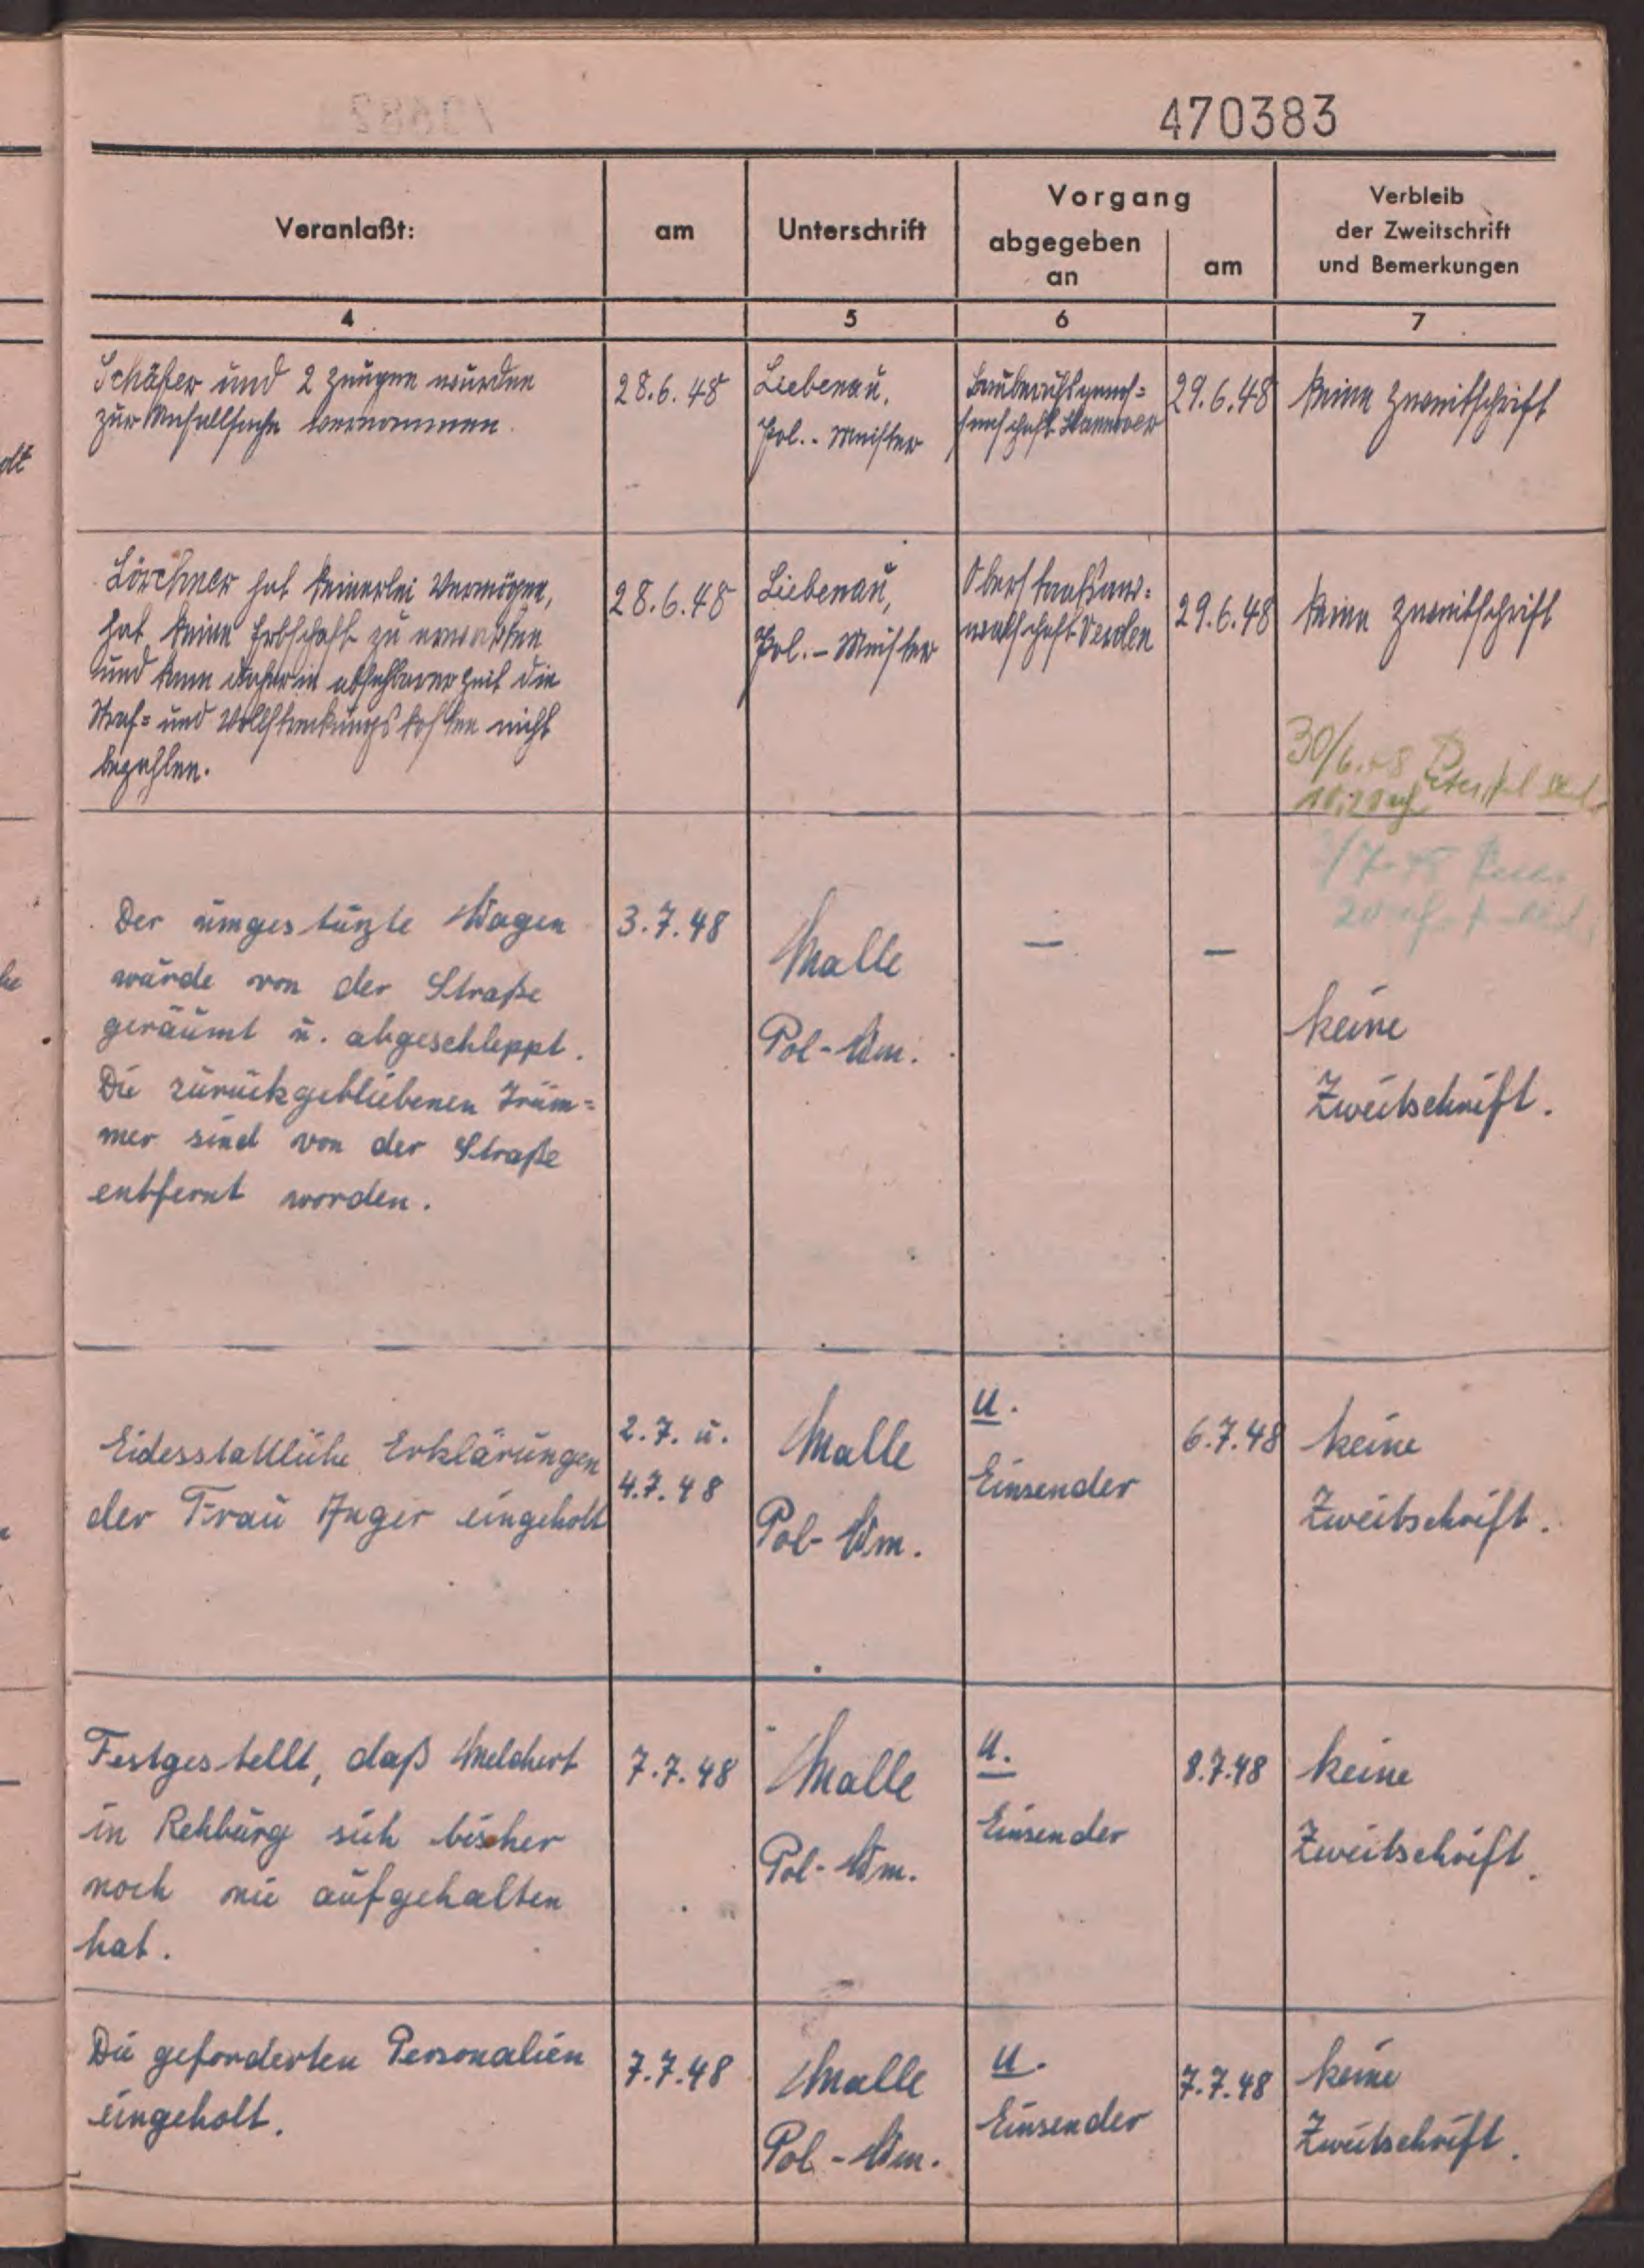 470383
Veranlaßt:
am
Unterschrift
Vorgang
abgegeben
an
am
Verbleib
der Zweitschrift
und Bemerkungen
4
5
6
7
Schäfer und 2 Zeugen wurden
zur Unfallsache vernommen.
28.6.48
Liebenau,
Pol.-Meister
Bauberufsgenos=
senschaft Hannover
29.6.48
keine Zweitschrift
Lörchner hat keinerlei Vermögen,
hat keine Erbschaft zu erwarten
und kann daher in absehbarer Zeit die
Straf= und Vollstreckungskosten nicht
bezahlen.
28.6.48
Liebenau,
Pol.-Meister
Oberstaatsan=
waltschaft Verden
29.6.48
keine Zweitschrift
30/6.48
Der umgestürzte Wagen
wurde von der Straße
geräumt u. abgeschleppt.
Die zurückgebliebenen Trüm=
mer sind von der Straße
entfernt worden.
3.7.48
Malle
Pol-Wm.
—
—
keine
Zweitschrift.
Eidesstattliche Erklärungen
der Frau Anger eingeholt
2.7. u.
4.7.48
Malle
Pol-Wm.
U.
Einsender
6.7.48
keine
Zweitschrift.
Festgestellt, daß Melchert
in Rehburg sich bisher
noch nie aufgehalten
hat.
7.7.48
Malle
Pol-Wm.
U.
Einsender
8.7.48
keine
Zweitschrift.
Die geforderten Personalien
eingeholt.
7.7.48
Malle
Pol-Wm.
U.
Einsender
7.7.48
keine
Zweitschrift.